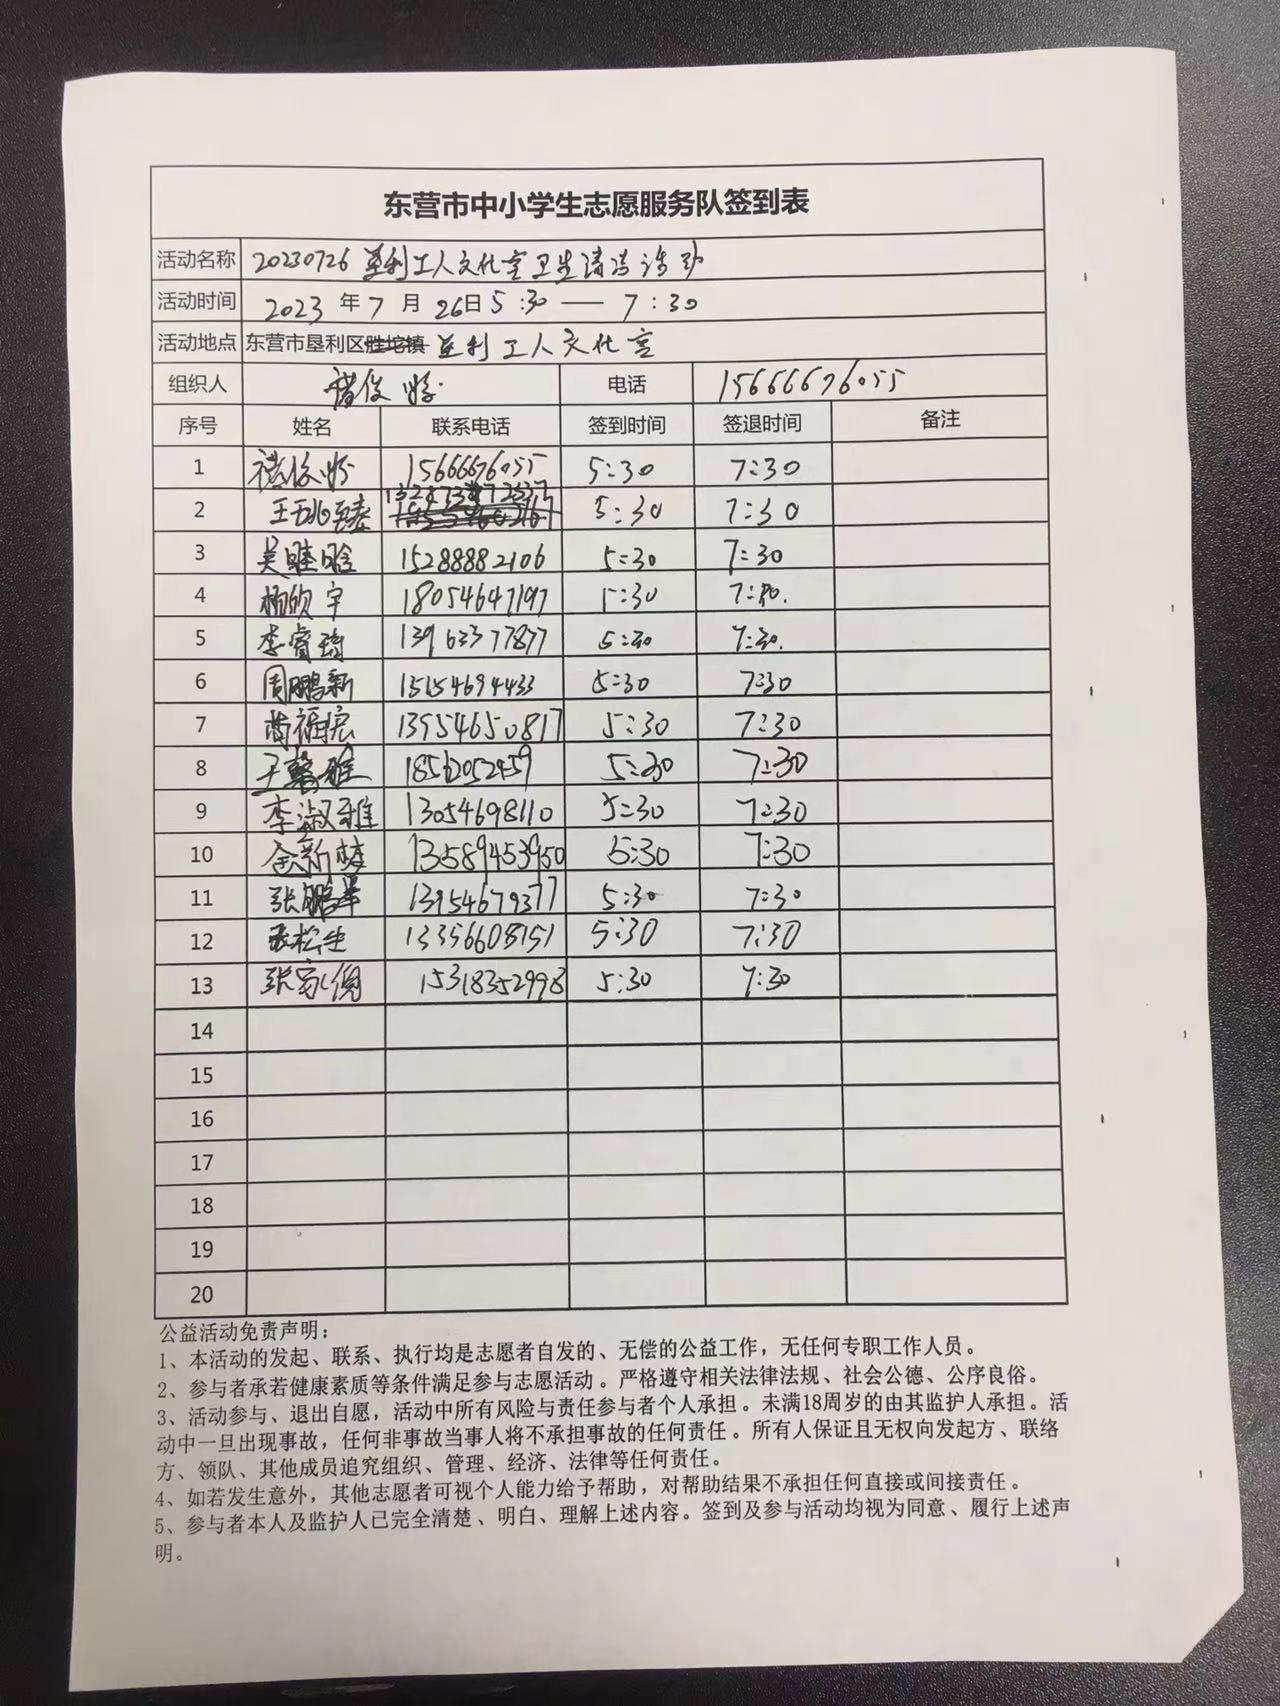 东营市中小学生志愿服务队签到表
活动名称 20230726垦利工人文化宫卫生清洁活动
活动时间 2023年7月26日5:30——7:30
活动地点 东营市垦利区胜坨镇 垦利工人文化宫
组织人 电话 15666676055
序号 姓名 联系电话 签到时间 签退时间 备注
1 15666676055 5:30 7:30
2 5:30 7:30
3 15288882106 5:30 7:30
4 杨欣宇 18054647197 5:30 7:30.
5 李睿琦 13963377877 5:30 7:30.
6 周鹏新 15154694433 5:30 7:30
7 13954650817 5:30 7:30
8 王馨雅 18562052459 5:30 7:30
9 李淑雅 13054698110 5:30 7:30
10 13589453950 5:30 7:30
11 13954679377 5:30 7:30
12 13356608151 5:30 7:30
13 15318352998 5:30 7:30
14
15
16
17
18
19
20
公益活动免责声明：
1、本活动的发起、联系、执行均是志愿者自发的、无偿的公益工作，无任何专职工作人员。
2、参与者承若健康素质等条件满足参与志愿活动。严格遵守相关法律法规、社会公德、公序良俗。
3、活动参与、退出自愿，活动中所有风险与责任参与者个人承担。未满18周岁的由其监护人承担。活
动中一旦出现事故，任何非事故当事人将不承担事故的任何责任。所有人保证且无权向发起方、联络
方、领队、其他成员追究组织、管理、经济、法律等任何责任。
4、如若发生意外，其他志愿者可视个人能力给予帮助，对帮助结果不承担任何直接或间接责任。
5、参与者本人及监护人已完全清楚、明白、理解上述内容。签到及参与活动均视为同意、履行上述声
明。